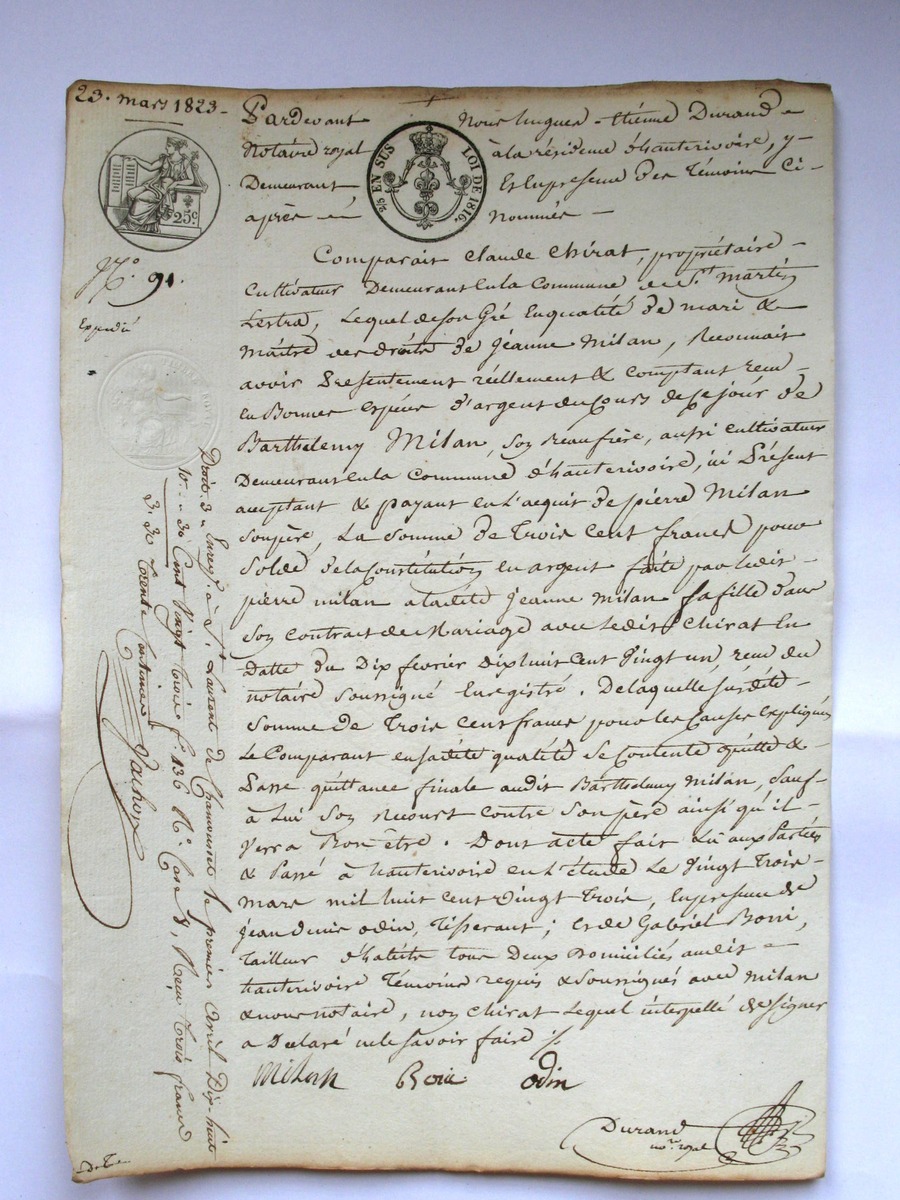 23. mars 1823 -
Pardevant Nous hugues - étienne Durand -
Notaire royal à la résidence d'hauterivoire, y -
Demeurant Et En presence des Témoins Ci -
après nommés -
25c
2/5 EN SUS LOI DE 1816.
N.o 91.
Expedié
Comparait Claude Chirat, propriétaire -
Cultivateur Demeurant En la Commune de St martin
Lestra, Lequel de son Gré En qualité de mari &
Maitre des droits de jéanne Milan, Reconnait
avoir Presentement réellement & Comptant recu
En Bonnes Espèces d'argent du Cours de Ce jour de
Barthelemy Milan, son Beaufrère, aussi Cultivateur
Demeurant En la Commune d'hauterivoire, ici Présent
acceptant & payant En l'acquit de pierre Milan
son père, La somme de Trois Cent francs pour
Solde de la Constitution en argent faite par Ledit
pierre milan a ladite jeanne milan sa fille dans
son Contrat de Mariage avec Ledit Chirat En
Datte du Dix fevrier Dix huit Cent Vingt un, recu du
notaire soussigné Enregistré. De laquelle susdite -
Somme de Trois Cent francs pour les Causes Expliquées
Le Comparant en sadite qualité se Contente quitte &
Passe quittance finale audit Barthelemy milan, sauf
à Lui son recours contre son père ainsi qu'il -
Verra Bon être. Dont acte fait Lu aux Parties
& Passé à hauterivoire en L'étude Le Vingt Trois -
mars mil huit Cent Vingt Trois, En presence de
jean Denis odin, Tisserant; Et de Gabriel Boni,
Tailleur d'habits tous Deux Domiciliés audit -
hauterivoire Témoins requis & soussignés avec milan
& nous notaire, non Chirat Lequel interpellé de signer
a Declaré ne le savoir faire ./.
Milan odin
Durand
no.re royal
Enreg.é à St Laurent de Chamousset le premier avril Dix-huit
Cent Vingt Trois f.o 136 R.o Case 8, Reçu Trois francs
Trente Centimes
Droits 3 "
10.e " 30
3. 30